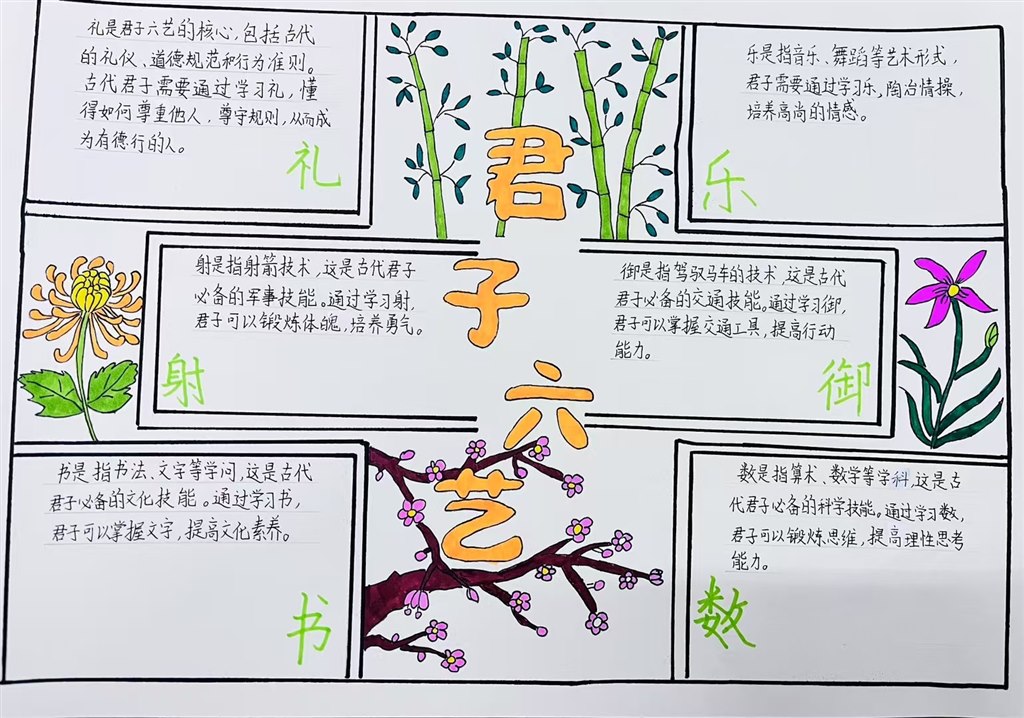 礼是君子六艺的核心，包括古代
的礼仪、道德规范和行为准则。
古代君子需要通过学习礼，懂
得如何尊重他人，尊守规则，从而成
为有德行的人。
礼
君
子
六
艺
乐是指音乐、舞蹈等艺术形式，
君子需要通过学习乐，陶冶情操，
培养高尚的情感。
乐
射是指射箭技术，这是古代君子
必备的军事技能。通过学习射，
君子可以锻炼体魄，培养勇气。
射
御是指驾驭马车的技术，这是古代
君子必备的交通技能。通过学习御，
君子可以掌握交通工具，提高行动
能力。
御
书是指书法、文字等学问，这是古代
君子必备的文化技能。通过学习书，
君子可以掌握文字，提高文化素养。
书
数是指算术、数学等学科，这是古
代君子必备的科学技能。通过学习数，
君子可以锻炼思维，提高理性思考
能力。
数